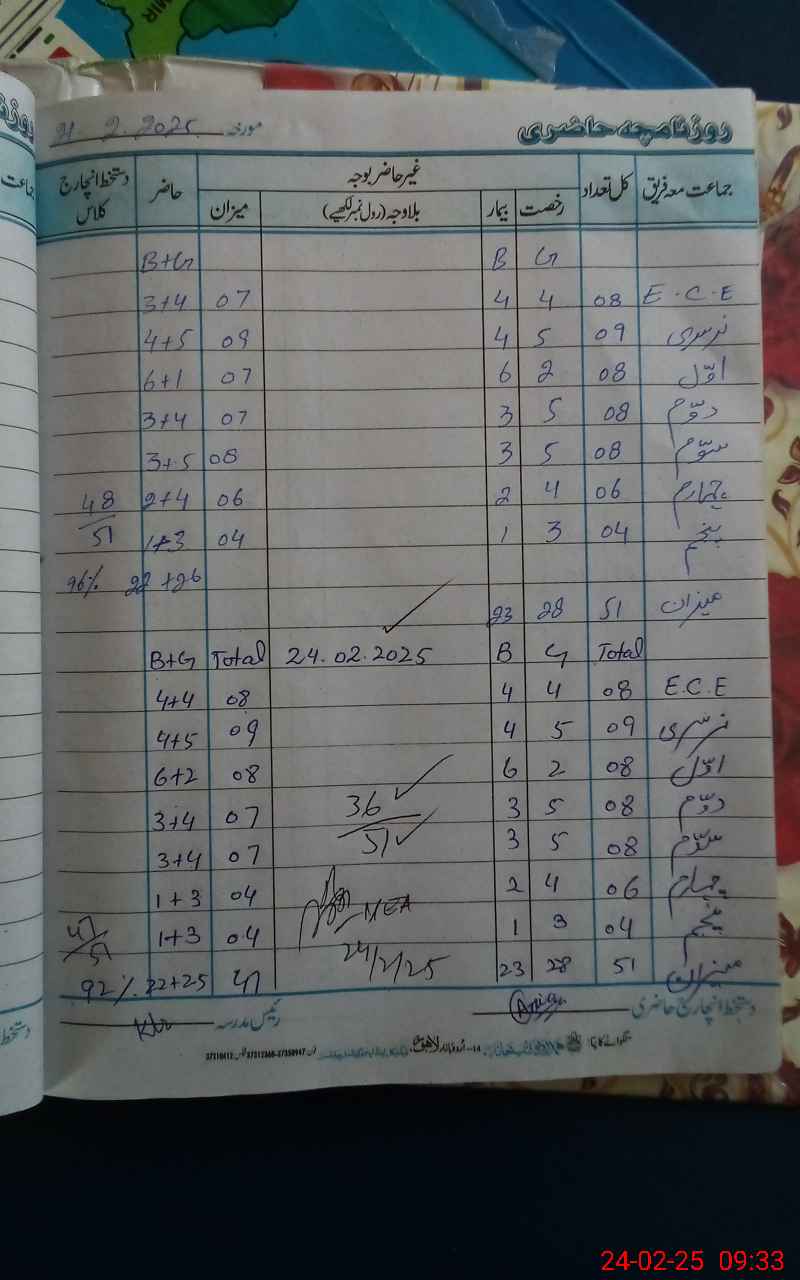 MIR
روزنامچہ حاضری مورخہ 21.2.2025
جماعت معہ فریق کل تعداد غیر حاضر بوجہ حاضر دستخط انچارج کلاس
رخصت بیمار بلاوجہ (رول نمبر لکھیے) میزان
G B B+G
E.C.E 08 4 4 07 3+4
نرسری 09 5 4 09 4+5
اوّل 08 2 6 07 6+1
دوّم 08 5 3 07 3+4
سوّم 08 5 3 08 3+5
چہارم 06 4 2 06 2+4 48/51
پنجم 04 3 1 04 1+3
22+26 96%
میزان 51 28 23
Total G B 24.02.2025 Total B+G
E.C.E 08 4 4 08 4+4
نرسری 09 5 4 09 4+5
اوّل 08 2 6 08 6+2
دوّم 08 5 3 36/51 07 3+4
سوّم 08 5 3 07 3+4
چہارم 06 4 2 04 1+3
پنجم 04 3 1 MEA 04 1+3 47/51
میزان 51 28 23 24/2/25 47 22+25 92%
دستخط انچارج حاضری رئیس مدرسہ
14-اُردو بازار لاہور
24-02-25 09:33